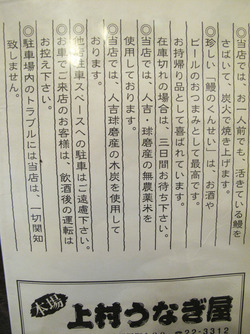 ◎当店では、お一人前でも、活きている鰻を
さばいて、炭火で焼き上げます。
◎珍しい「鰻のくんせい」は、お酒や
ビールのおつまみとして最高です。
お持帰り品として喜ばれています。
在庫切れの場合は、三日間お待ち下さい。
◎当店では、人吉・球磨産の無農薬米を
使用しております。
◎当店では、人吉球磨産の木炭を使用して
おります。
◎他の駐車スペースへの駐車はご遠慮下さい。
◎お車でご来店のお客様は、飲酒後の運転は
お控え下さい。
◎駐車場内のトラブルには当店は、一切関知
致しません。
本場
上村うなぎ屋
22-3312